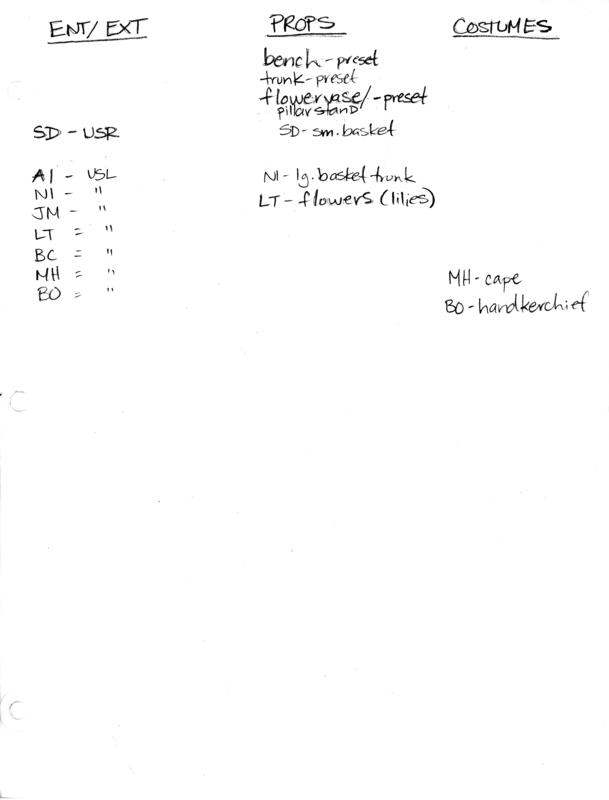 ENT/EXT PROPS COSTUMES
bench - preset
trunk - preset
flowervase/ - preset
pillar stand
SD - USR SD - sm. basket
A1 - USL N1 - lg. basket trunk
N1 - " LT - flowers (lilies)
JM - "
LT = "
BC = "
MH = " MH - cape
BO = " BO - handkerchief